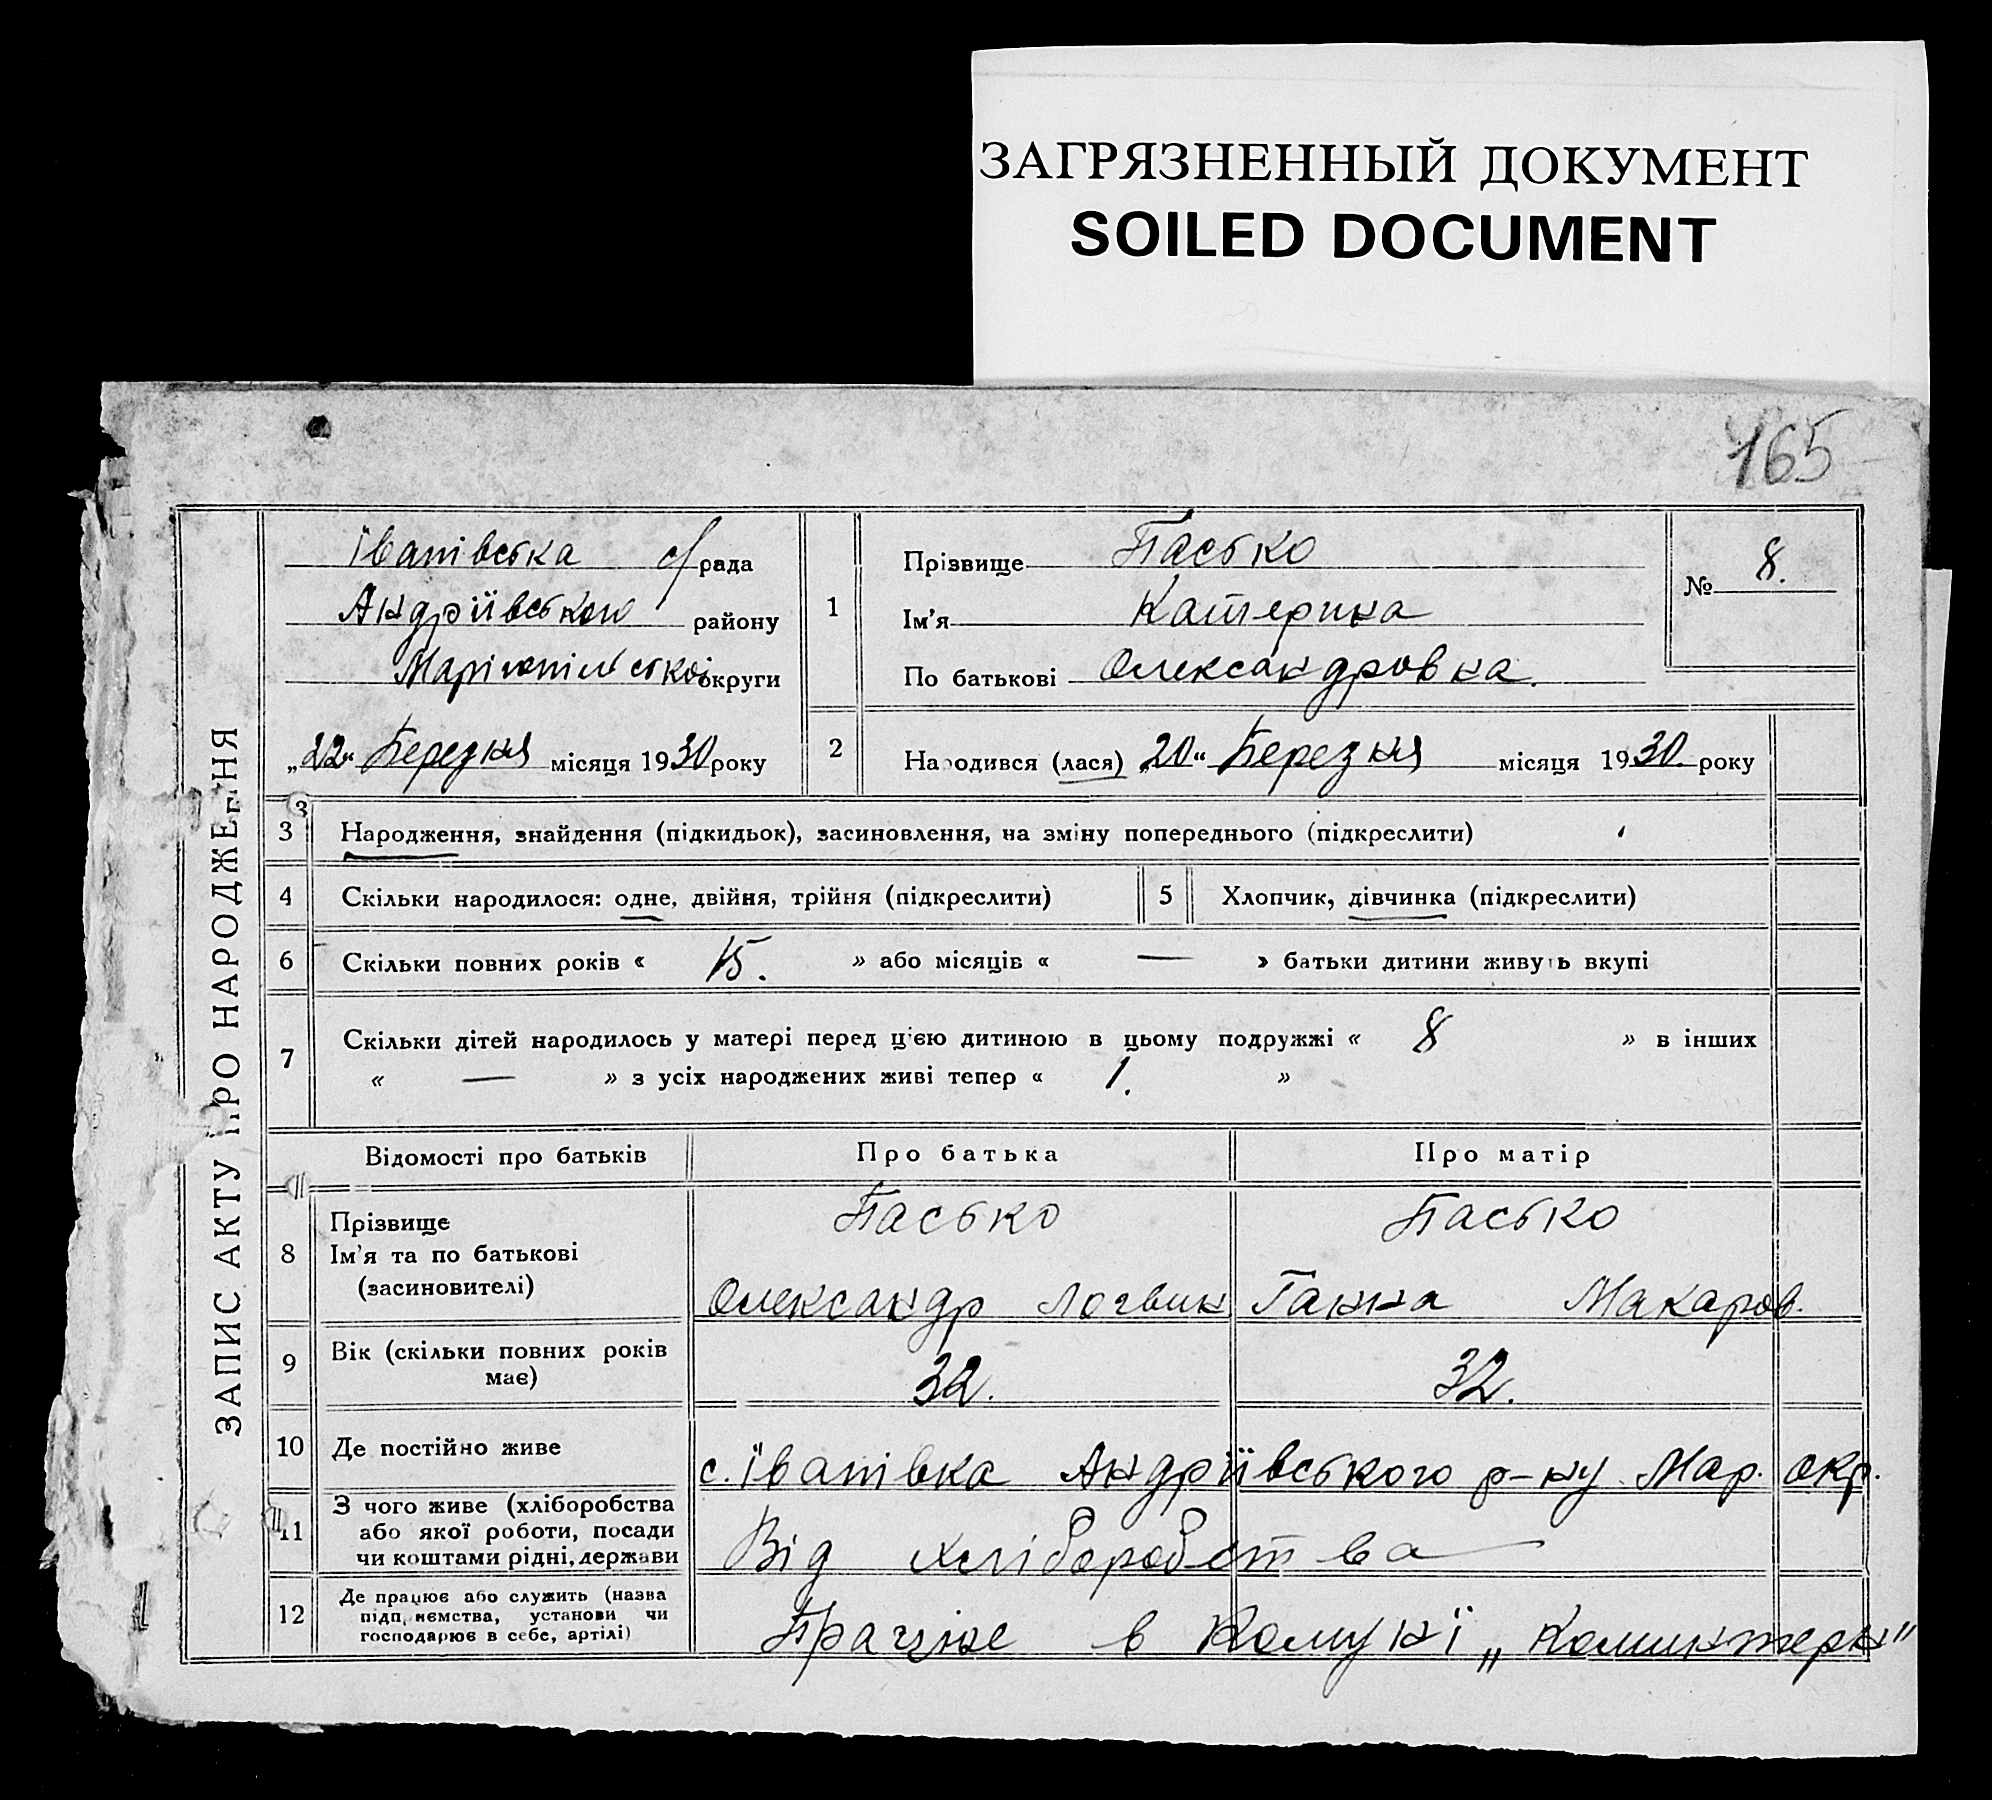 ЗАГРЯЗНЕННЫЙ ДОКУМЕНТ
SOILED DOCUMENT
165
ЗАПИС АКТУ ПРО НАРОДЖЕННЯ
Іванівська с/рада
Андріївського району
Маріюпільської округи
„22“ Березня місяця 1930 року
1
Прізвище Пасько
Ім'я Катерина
По батькові Олександровна.
№ 8.
2 Народився (лася) „20“ Березня місяця 1930 року
3
3 Народження, знайдення (підкидьок), засиновлення, на зміну попереднього (підкреслити)
4 Скільки народилося: одне, двійня, трійня (підкреслити) 5 Хлопчик, дівчинка (підкреслити)
6 Скільки повних років « 15. » або місяців « — » батьки дитини живуть вкупі
7 Скільки дітей народилось у матері перед цією дитиною в цьому подружжі « 8 » в інших
« — » з усіх народжених живі тепер « 1. »
Відомості про батьків Про батька Про матір
8 Прізвище
Ім'я та по батькові
(засиновителі)
Пасько
Олександр Логвин
Пасько
Ганна Макаров.
9 Вік (скільки повних років
має)
32. 32.
10 Де постійно живе с. Іванівка Андріївського р-ну Мар. окр.
11 З чого живе (хліборобства
або якої роботи, посади
чи коштами рідні, держави
Від хліборобства
12 Де працює або служить (назва
підприємства, установи чи
господарює в себе, артілі)
Працює в Комуні „Коминтерн“